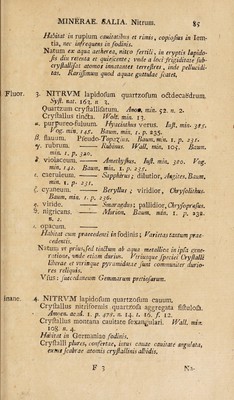 MINERÆ. SALIA. Nitrum. 85
Habitat in rupium cavitatibus et rimis, copiosius in Iem-
tia, nec infrequens in fodinis.
Natum ex aqua aetherea, nitro fertili, in cryptis lapido-
sis diu retenta et quiescente; unde a loci frigiditate sub-
crystallisat atomos innatantes terrestres, inde pelluciti-
tas. Rarissimum quod aquae guttulae scatet.
Fluor. 3. NITRVM lapidosum quartzosum octdecaëdrum.
Syst. nat. 161. n 3.
Quartzum crystallisatum. Anon. min. 52. n. 2.
Crystallus tincta. Wolt. min. 13.
α. purpureo-fuluum. Hyacinthus verus. Iust. min. 385.
Vog. min. 148. Baum. min. 1. p. 235.
β. flauum. Pseudo-Topazius. Baum. min. 1. p. 231.
γ. rubrum. Rubinus. Wall. min. 105. Baum.
min. 1. p. 320.
δ. violaceum. Amethystus. Iust. min. 380. Vog.
min. 142. Baum. min. 1. p. 235.
ε. caeruleum. Sapphirus; dilutior, Augites, Baum.
min. 1. p. 231.
ζ. cyaneum. Beryllus; viridior, Chrysolithus.
Baum. min. 1. p. 236.
η. viride. Smaragdus; pallidior, Chrysoprasus.
θ. nigricans. Morion. Baum. min. 1. p. 238.
n. 2.
ι. opacum.
Habitat cum praecedenti in fodinis; Varietas tantum prae-
cedentis.
Natum vt prius, sed tinctum ab aqua metallica in ipsa gene-
ratione, vnde etiam durius. Vtriusque speciei Crystalli
liberae et vtrimque pyramidatae sunt communiter durio-
res reliquis.
Vsus: succedaneum Gemmarum pretiosarum.
inane. 4. NITRVM lapidosum quartzosum cauum.
Crystallus nitriformis quartzosa aggregata fistulosa.
Amoen. acad. 1. p. 478. n. 14. t. 16. f. 12.
Crystallus montana cauitate sexangulari. Wall. min.
108. n. 4.
Habitat in Germaniae fodinis.
Crystalli plures, confertae, intus cauae cauitate angulata,
extus scabrae atomis crystallinis albidis.
F 3 Na-